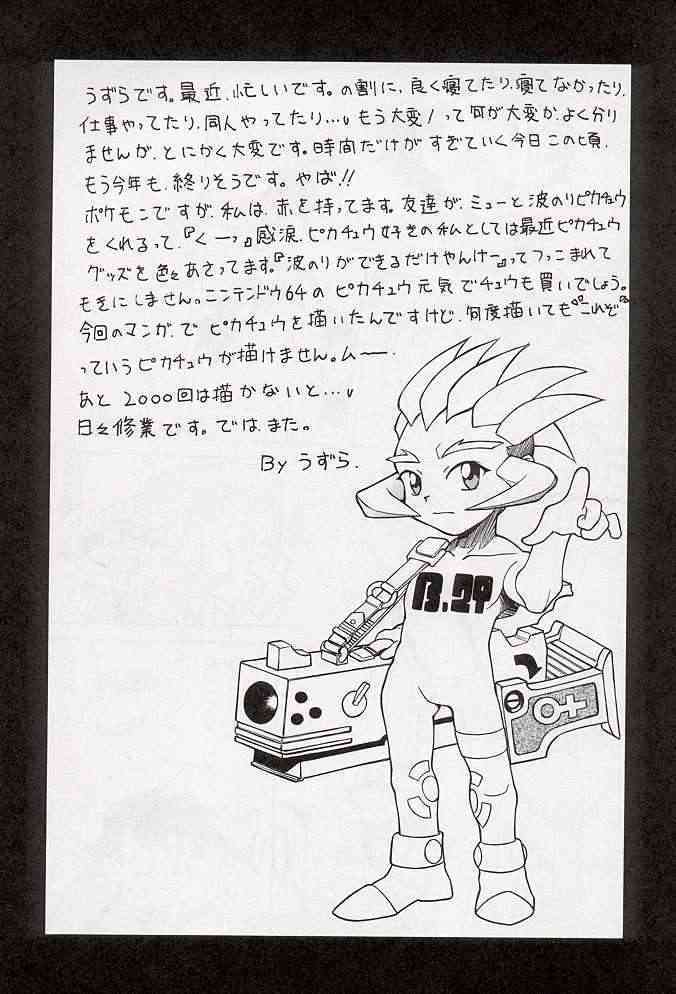 うずらです。最近、忙しいです。の割に、良く寝てたり、寝てなかったり、
仕事やってたり、同人やってたり…もう大変!って何が大変か、よく分り
ませんが、とにかく大変です。時間だけが すぎていく今日この頃、
もう今年も、終りそうです。やば!!
ポケモンですが、私は、赤を持ってます。友達が、ミューと波のりピカチュウ
をくれるって、『くーっ』感涙、ピカチュウ好きの私としては最近ピカチュウ
グッズを色々あさってます。『波のりができるだけやんけー』ってつっこまれて
もきにしません。ニンテンドウ64の ピカチュウ元気でチュウも買いでしょう。
今回のマンガ、で ピカチュウを描いたんですけど、何度描いても『これぞ』
っていうピカチュウが描けません。ムー。
あと 2000回は描かないと…
日々修業です。では、また。
By うずら.
B.2P